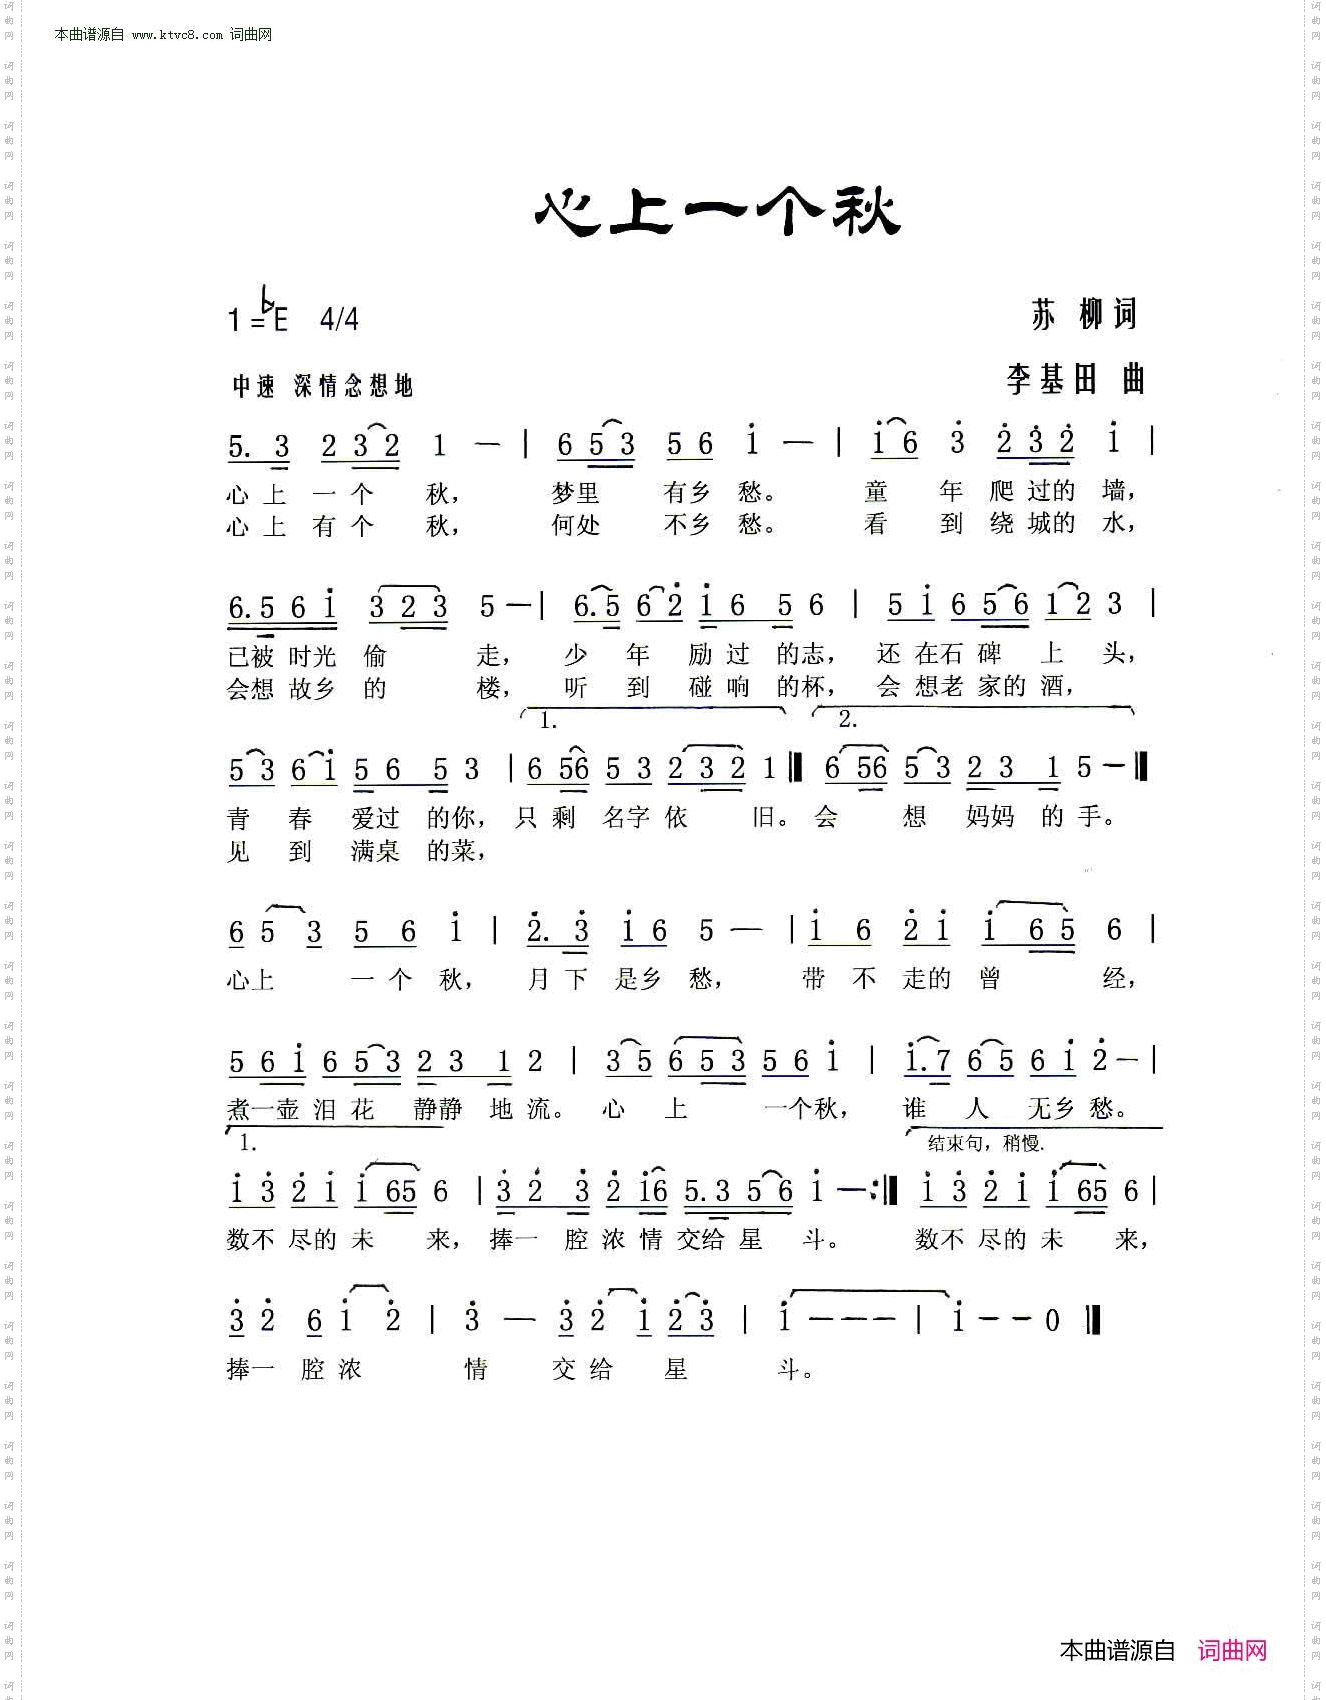 本曲谱源自 www.ktvc8.com 词曲网
心上一个秋
1=♭E 4/4
苏 柳词
中速 深情念想地
李基田 曲
5. 3 2 3 2 1 — | 6 5 3 5 6 i — | i 6 3 2 3 2 i |
心上一个 秋, 梦里 有乡愁。 童 年爬过的墙,
心上有个 秋, 何处 不乡愁。 看 到绕城的水,
6. 5 6 i 3 2 3 5 — | 6. 5 6 2 i 6 5 6 | 5 i 6 5 6 1 2 3 |
已被时光偷 走, 少 年 励过 的志, 还在石碑 上 头,
会想故乡的 楼, 听 到 碰响 的杯, 会想老家的酒,
1. 2.
5 3 6 i 5 6 5 3 | 6 56 5 3 2 3 2 1 ‖ 6 56 5 3 2 3 1 5 — ‖
青 春 爱过 的你, 只剩 名字依 旧。会 想 妈妈 的手。
见 到 满桌 的菜,
6 5 3 5 6 i | 2. 3 i 6 5 — | i 6 2 i i 6 5 6 |
心上 一个 秋, 月下 是乡愁, 带不走的曾 经,
5 6 i 6 5 3 2 3 1 2 | 3 5 6 5 3 5 6 i | i. 7 6 5 6 i 2 — |
煮一壶泪花 静静 地流。 心 上 一个秋, 谁 人 无乡愁。
1. 结束句，稍慢.
i 3 2 i i 65 6 | 3 2 3 2 i6 5. 3 5 6 i — :‖ i 3 2 i i 65 6 |
数不尽的未 来, 捧一 腔浓情交给星 斗。 数不尽的未 来,
3 2 6 i 2 | 3 — 3 2 i 2 3 | i — — — | i — — 0 ‖
捧一 腔浓 情 交给 星 斗。
本曲谱源自 词曲网